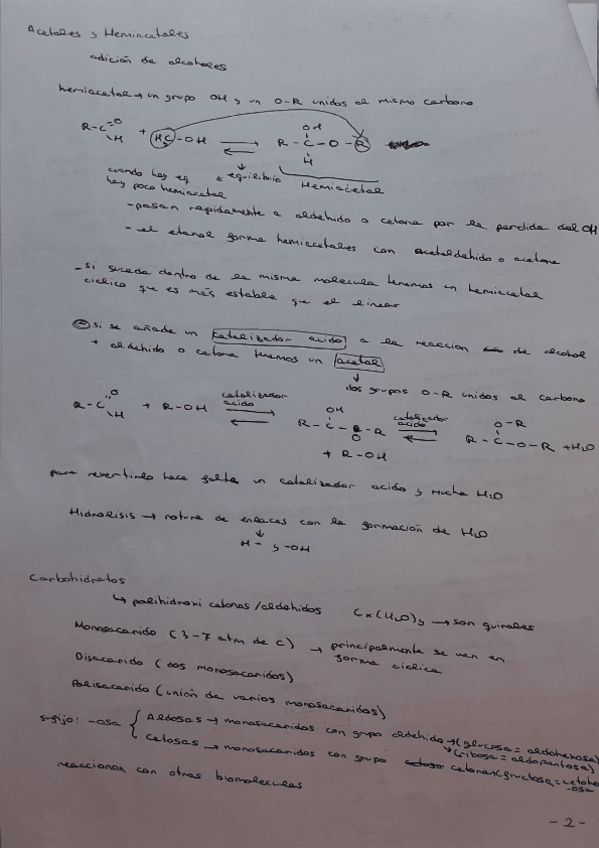 Acetales y Hemiacetales
adición de alcoholes
hemiacetal → un grupo OH y un O-R unidos al mismo carbono
R-C=O H + HC-OH ⇌ R-C-O-R OH H
cuando hay eq hay poco hemiacetal
equilibrio
Hemiacetal
- pasan rapidamente a aldehido o cetona por la perdida del OH
- el etanol forma hemiacetales con acetaldehido o acetona
- si suceda dentro de la misma molecula tenemos un hemiacetal
ciclico que es más estable que el linear
si se añade un katalizador acido a la reaccion de alcohol
+ aldehido o cetona tenemos un acetal
dos grupos O-R unidos al carbono
R-C=O H + R-OH ⇌ catalizador acido R-C-O-R OH + R-OH ⇌ catalizador acido R-C-O-R O-R + H2O
para revertirlo hace falta un catalizador acido y mucha H2O
Hidrolisis → rotura de enlaces con la formación de H2O
H- y -OH
Carbohidratos
↳ polihidroxi cetonas/aldehidos Cx(H2O)y → son quirales
Monosacarido (3-7 atm de C) → principalmente se ven en
forma ciclica
Disacarido (dos monosacaridos)
Polisacarido (unión de varios monosacaridos)
sufijo: -osa { Aldosas → monosacaridos con grupo aldehido → (glucosa = aldohexosa)
(ribosa = aldopentosa)
Cetosas → monosacaridos con grupo cetona (fructosa = cetohex
-osa
reaccionan con otras biomoleculas
- 2 -